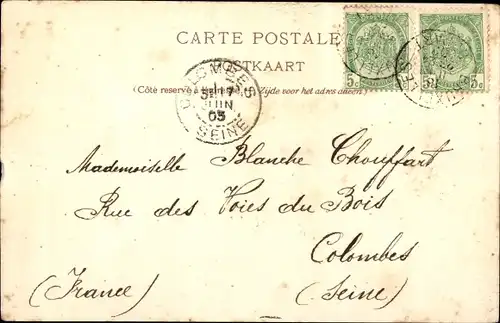 CARTE POSTALE
POSTKAART
(Côté réservé à l'adresse. — Zijde voor het adres alleen)
5c 5c 5c
COLOMBES
17
JUIN
05
SEINE
Mademoiselle Blanche Chouffart
Rue des Voies du Bois
Colombes
(France) (Seine)